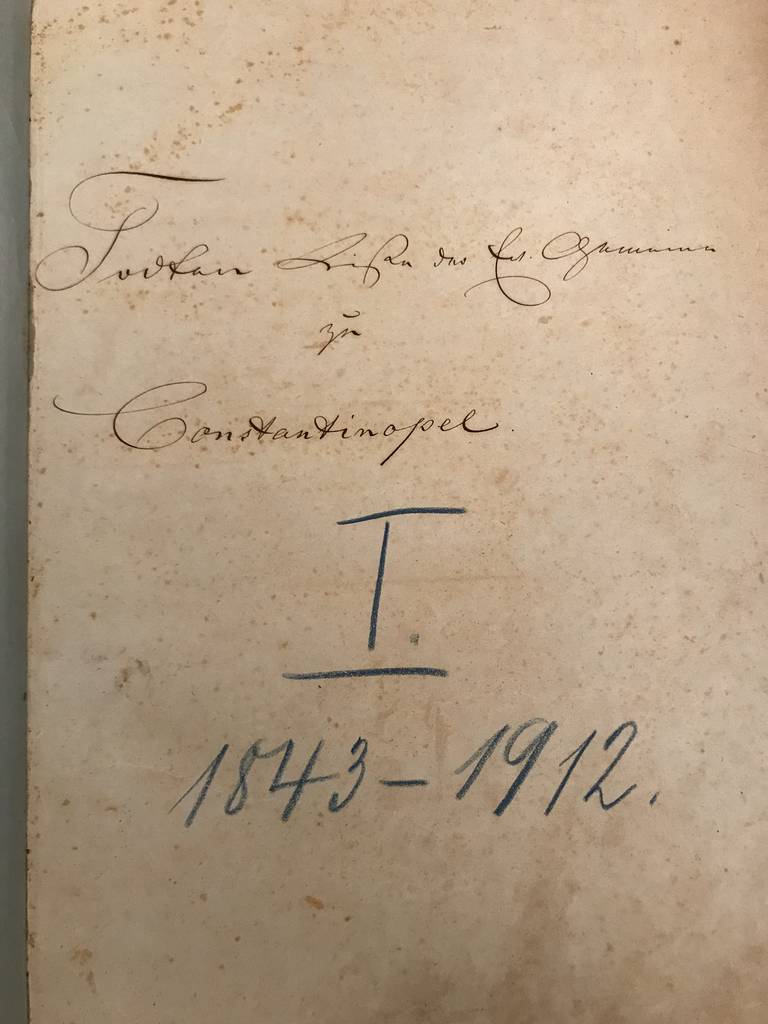 Todten Liste der Ev. Gemeinde
zu
Constantinopel.
I.
1843 – 1912.